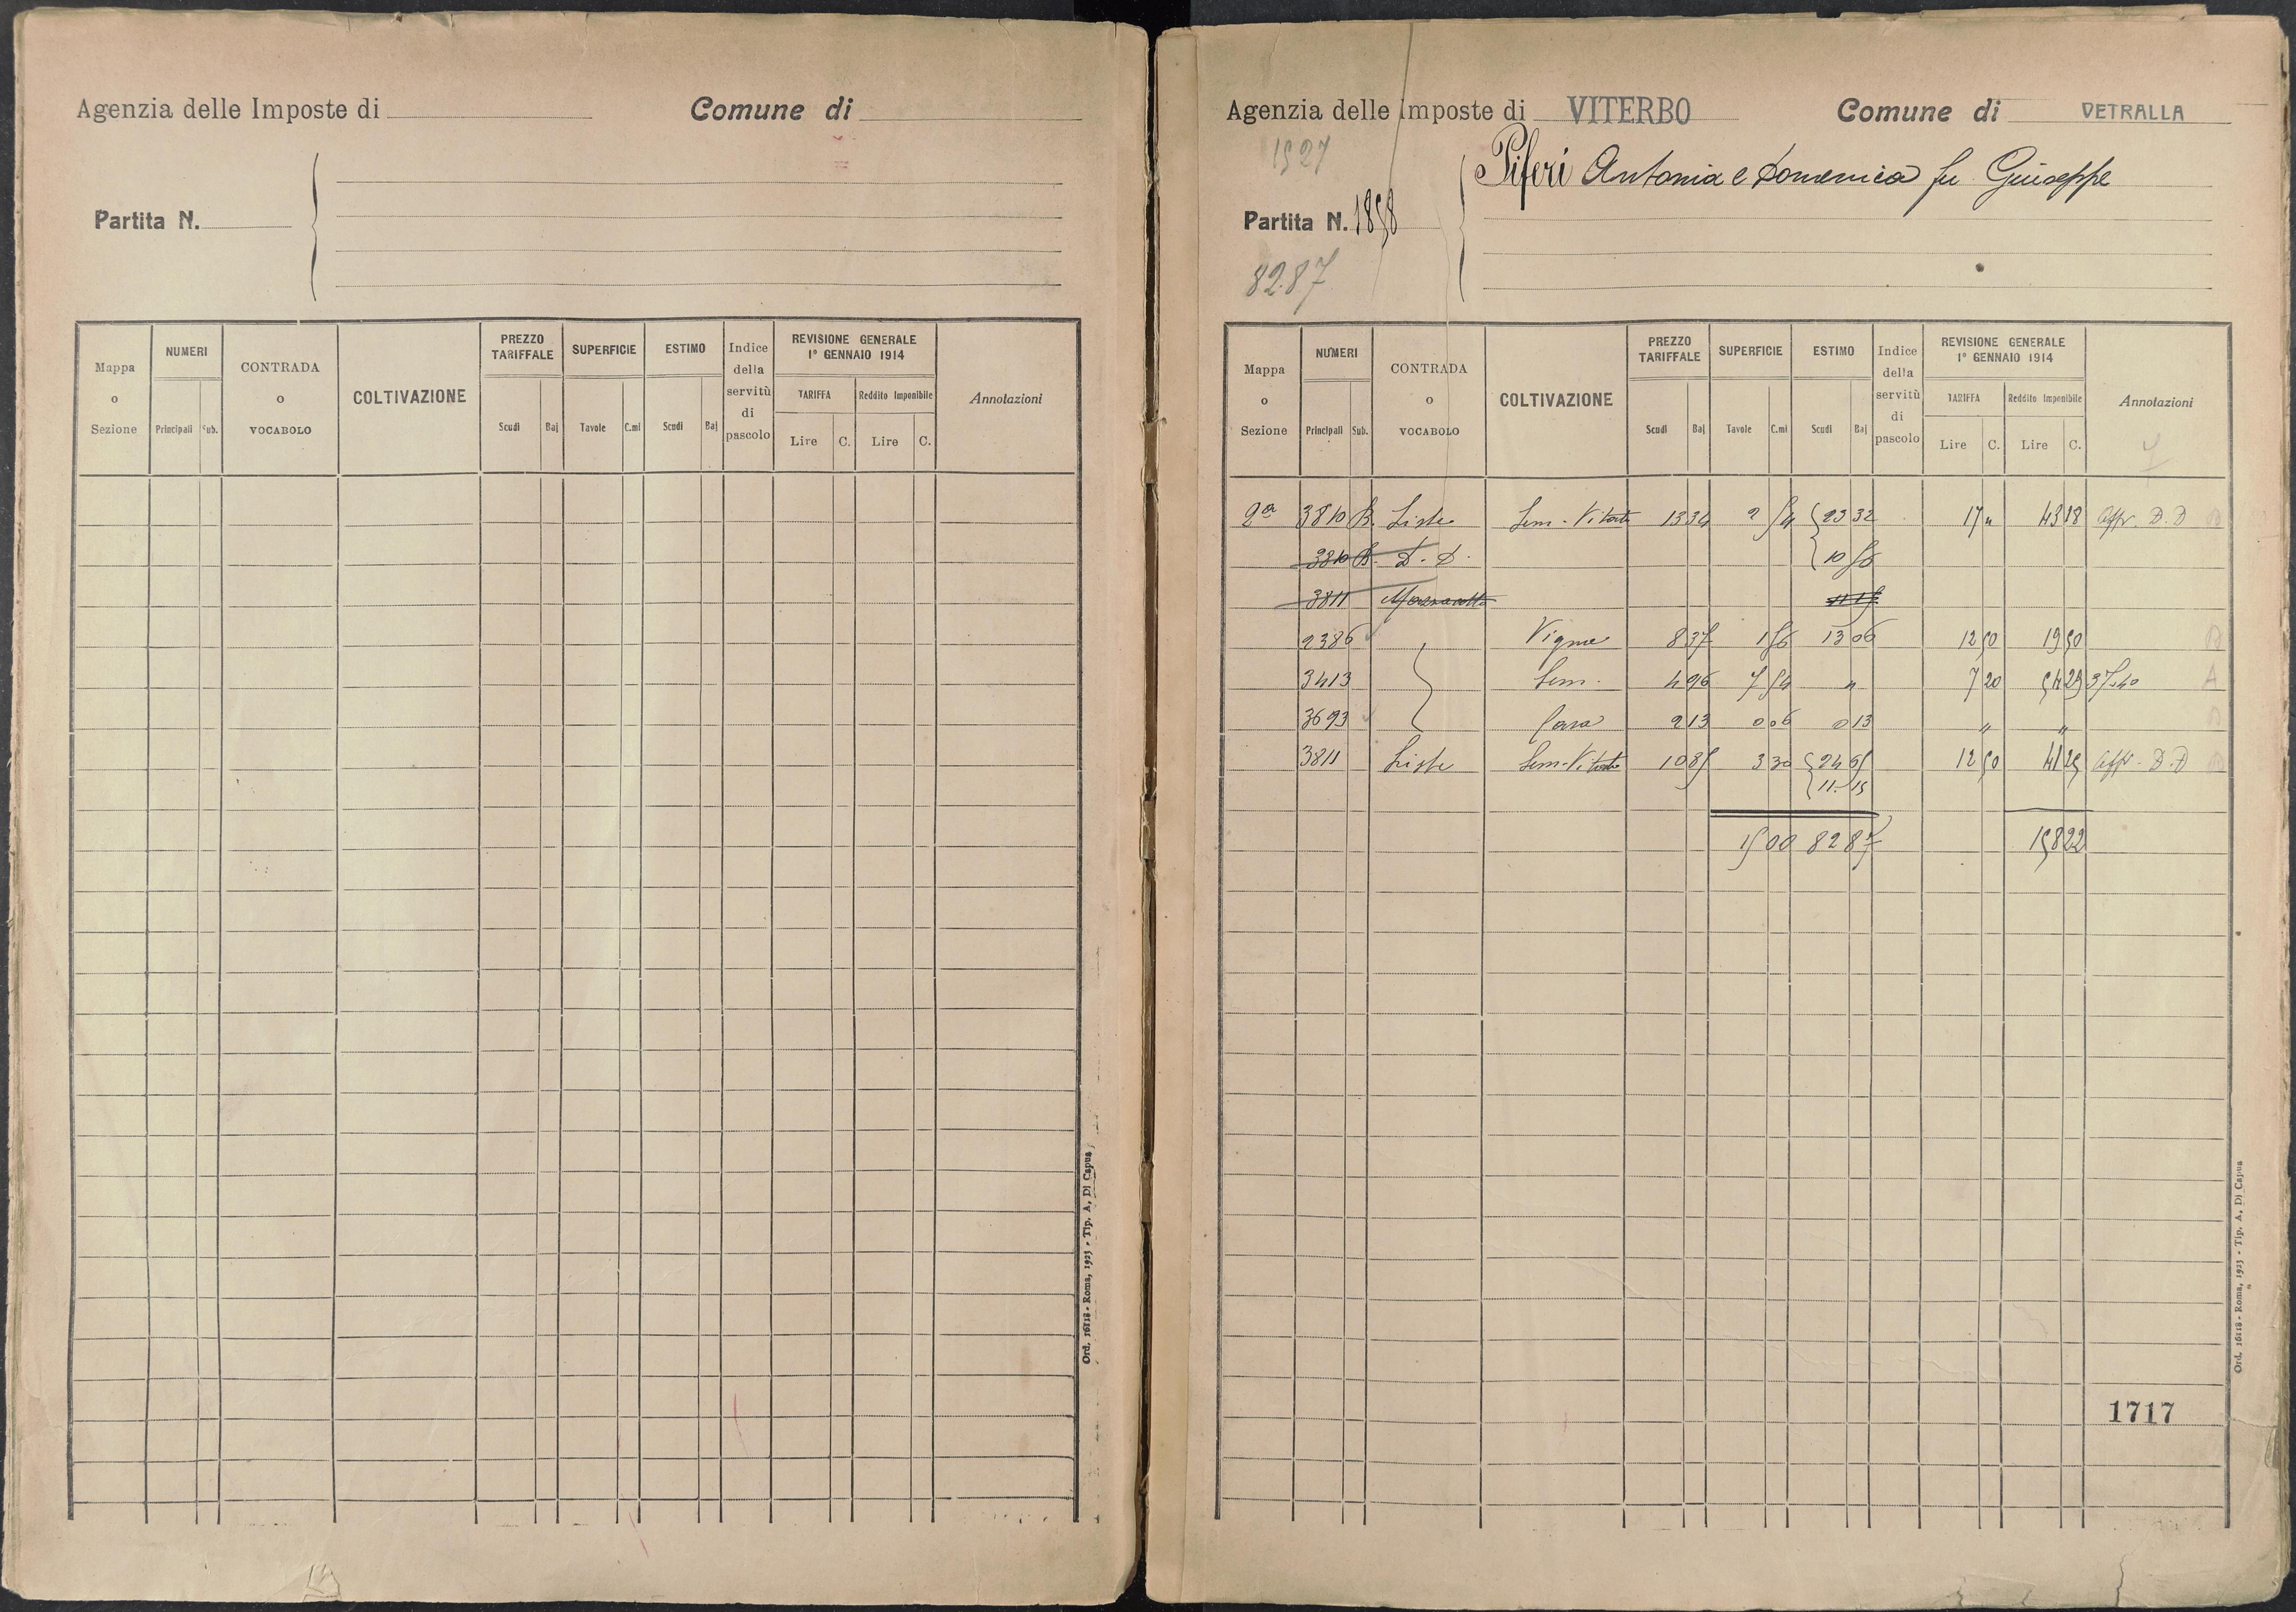 Agenzia delle Imposte di
Comune di
Partita N.
Mappa o Sezione
NUMERI
Principali
Sub.
CONTRADA o VOCABOLO
COLTIVAZIONE
PREZZO TARIFFALE
Scudi
Baj
SUPERFICIE
Tavole
C.mi
ESTIMO
Scudi
Baj
Indice della servitù di pascolo
REVISIONE GENERALE
1° GENNAIO 1914
TARIFFA
Lire
C.
Reddito Imponibile
Lire
C.
Annotazioni
Ord. 16118 - Roma, 1923 - Tip. A. Di Capua
Agenzia delle Imposte di VITERBO
Comune di VETRALLA
1927
Piferi Antonia e Domenica fu Giuseppe
Partita N. 1858
82.87
Mappa o Sezione
NUMERI
Principali
Sub.
CONTRADA o VOCABOLO
COLTIVAZIONE
PREZZO TARIFFALE
Scudi
Baj
SUPERFICIE
Tavole
C.mi
ESTIMO
Scudi
Baj
Indice della servitù di pascolo
REVISIONE GENERALE
1° GENNAIO 1914
TARIFFA
Lire
C.
Reddito Imponibile
Lire
C.
Annotazioni
2a 3810 B. Liste Sem. Vitato 13 34 2 54 23 32 17 " 43 18 Affr. D. D
3810 B. D. D. 10 56
3811
2386 Vigna 8 37 1 56 13 06 12 50 19 50
3413 Sem. 4 96 7 54 " 7 20 54 29 37.40 A
3693 Casa 2 13 0 06 0 13 " "
3811 Liste Sem. Vitato 10 85 3 30 24 65 12 50 41 25 Affr. D. D
11.15
15 00 82 87 158 22
1717
Ord. 16118 - Roma, 1923 - Tip. A. Di Capua